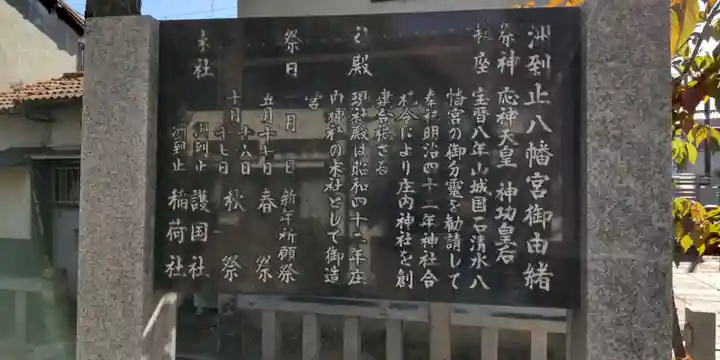 洲到止八幡宮御由緒
祭神 応神天皇 神功皇后
鎮座 宝暦八年山城国石清水八
幡宮の御分霊を勧請して
奉祀明治四十二年神社合
祀令により庄内神社を創
建合祀さる
社殿 現社殿は昭和四十一年庄
内神社の末社として御造
営
祭日 一月一日 新年祈願祭
五月十七日 春祭
十月十六日 十七日 秋祭
末社 洲到止 護国社
洲到止 稲荷社